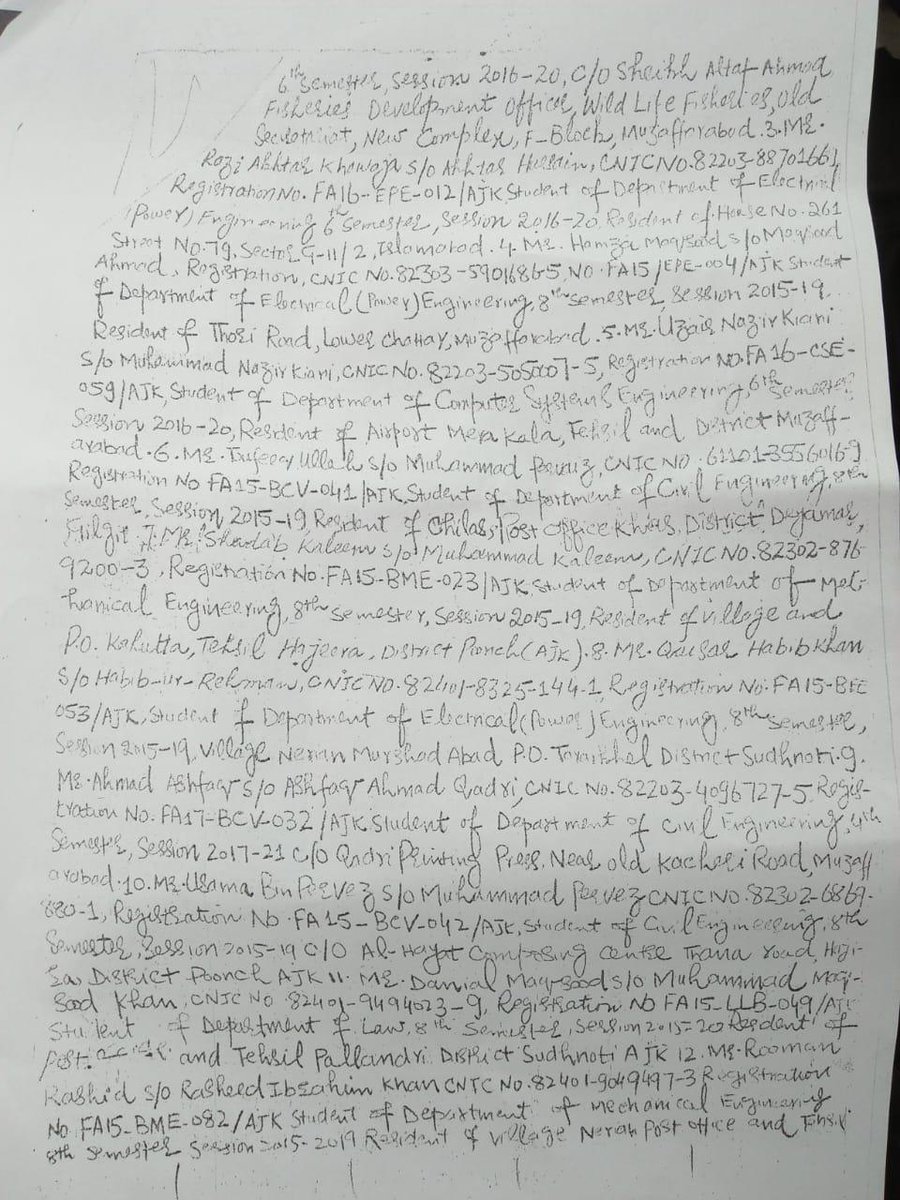 6th Semester, Session 2016-20, C/O Sheikh Altaf Ahmad
Fisheries Development Officer, Wild Life Fisheries, Old
Secretariat, New Complex, F-Block, Muzaffarabad. 3. Mr.
Rozi Akhtar Khawaja S/o Akhtar Hussain, CNIC NO. 82203-8870166,
Registration No. FA16-EPE-012/AJK Student of Department of Electrical
(Power) Engineering 6th Semester, Session 2016-20, Resident of House No. 261
Street No. 79, Sector G-11/2, Islamabad. 4. Mr. Hamza Maqsood s/o Maqsood
Ahmad, Registration, CNIC No. 82303-5901686-5 NO FA15/EPE-004/AJK Student
of Department of Electrical (Power) Engineering, 8th Semester, Session 2015-19,
Resident of Thori Road, Lower Chattar, Muzaffarabad. 5. Mr. Uzair Nazir Kiani
S/o Muhammad Nazir Kiani, CNIC No. 82203-505007-5, Registration No. FA16-CSE-
059/AJK, Student of Department of Computer Systems Engineering, 6th Semester,
Session 2016-20, Resident of Airport Mera Kala, Tehsil and District Muzaff-
arabad. 6. Mr. Ullah S/o Muhammad Parvaz, CNIC NO. 61101-3556016-9
Registration No FA15-BCV-041/AJK, Student of Department of Civil Engineering, 8th
Semester, Session 2015-19, Resident of Chilas, Post Office Khas, District Dayamar,
Gilgit. 7. Mr. Shadab Kaleem s/o Muhammad Kaleem, CNIC NO. 82302-876
9200-3, Registration No. FA15-BME-023/AJK, Student of Department of Mec-
hanical Engineering, 8th Semester, Session 2015-19, Resident of village and
P.O. Kakutta, Tehsil Hajeera, District Poonch (AJK). 8. Mr. Qaisar Habib Khan
S/o Habib-ur-Rehman, CNIC NO. 82401-8325-144-1, Registration No. FA15-
053/AJK, Student of Department of Electrical (Power) Engineering, 8th Semester,
Session 2015-19, Village Nerian Murshad Abad P.O. Tarakhel District Sudhnoti. 9.
Mr. Ahmad Ashfaq S/o Ashfaq Ahmad Qadri, CNIC No. 82203-4096727-5 Regis-
tration No. FA17-BCV-032/AJK Student of Department of Civil Engineering, 4th
Semester, Session 2017-21 C/O Qadri Printing Press, Near old Kacheri Road, Muzaff
arabad. 10. Mr. Usama Bin Pervez S/o Muhammad Pervez CNIC NO. 82302-6869-
880-1, Registration No. FA15-BCV-042/AJK, Student of Civil Engineering, 8th
Semester, Session 2015-19 C/O Al-Hayat Composing Centre Thana road, Haji-
ra, District Poonch AJK 11. Mr. Danial Maqsood S/o Muhammad Maq-
sood Khan, CNIC NO. 82401-9494023-9, Registration No FA15-LLB-049/AJK
Student of Department of Law, 8th Semester, Session 2015-20 Resident of
Post and Tehsil Pallandri District Sudhnoti AJK 12. Mr. Rooman
Rashid S/o Rasheed Ibrahim Khan CNIC NO. 82401-9049497-3 Registration
No. FA15-BME-082/AJK Student of Department of Mechanical Engineering
8th Semester Session 2015-2019 Resident of village Nerian Post office and Tehsil